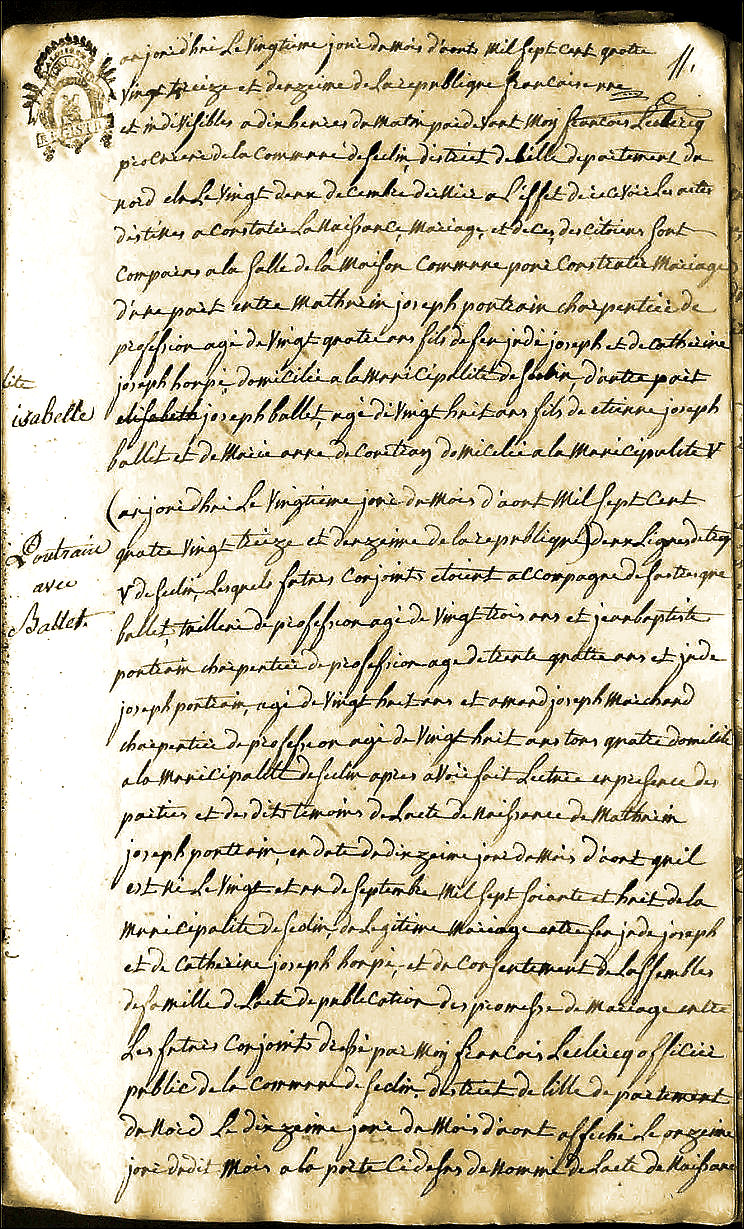 11.
aujourd'hui Le Vingtieme jour du mois d'aouts Mil Sept Cent quatre
Vingt treize et deuxieme de la republique francaise une
et indivisibles a dix heures du Matin par devant Moy francois Leclercq
de la Commune de seclin, district de Lille departement du
nord elu Le Vingt deux decembre dernier a L'effet de recevoir Les actes
destines a constater La Naissance, Mariage, et deces, des citoiens sont
Comparus a la Salle de la Maison Commune pour Constater Mariage
d'une part entre Mathurin joseph poutrain charpentier de
profession agé de Vingt quatre ans fils de feu jude joseph et de catherine
joseph domicilié a la Municipalité de Seclin, d'autre part
isabelle
elisabeth joseph ballet, agé de Vingt huit ans fils de etienne joseph
ballet et de Marie anne de domicilié a la Municipalité V
(aujourd'hui Le Vingtieme jour du Mois d'aout Mil Sept Cent
quatre Vingt treize et deuxieme de la republique) deux Lignes
Poutrain
avec
Ballet.
V de seclin, Lesquels futurs Conjoints etoient accompagné de
ballet, tailleur de profession agé de Vingt trois ans et jean baptiste
poutrain charpentier de profession age de trente quatre ans et jude
joseph poutrain, agé de Vingt huit ans et amand joseph Marchand
charpentier de profession agé de Vingt huit ans tous quatre domicilié
a la Municipalité de seclin apres avoir fait Lecture en presence des
parties et desdits temoins de L'acte de Naissance de Mathurin
joseph poutrain, en date du dixieme jour du Mois d'aout quil
est Né Le Vingt et un de Septembre Mil Sept Soiante et huit de la
Municipalité de seclin du Legitime Mariage entre feu jude joseph
et de Catherine joseph et du Consentement de L'assemblee
de famille de L'acte de publication des promesse de Mariage entre
Les futurs Conjoints dressé par Moy francois Leclercq officier
public de la Commune de seclin, district de lille departement
du Nord Le dixieme jour du Mois d'aout affiché Le onzieme
jour dudit Mois a la porte Ci dessus de Nommé de L'acte de Naissance